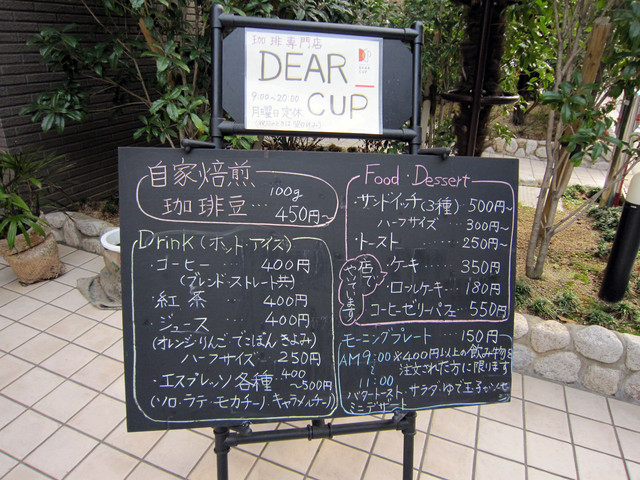 珈琲専門店
DEAR
CUP
9:00~20:00
月曜日定休
自家焙煎
100g
珈琲豆… 450円~
Drink(ホット・アイス)
・コーヒー 400円
(ブレンド・ストレート共)
・紅茶 … 400円
・ジュース … 400円
(オレンジ・りんご・でこぽん・きよみ)
ハーフサイズ 250円
・エスプレッソ各種… 400~500円
(ソロ・ラテ・モカチーノ・キャラメルチーノ)
Food・Dessert
・サンドイッチ(3種) 500円~
ハーフサイズ … 300円~
・トースト …… 250円~
店でやいています
・ケーキ … 350円
・ロールケーキ… 180円
コーヒーゼリーパフェ… 550円
モーニングプレート 150円~
AM9:00~11:00
※400円以上の飲み物を
注文された方に限ります
バタートースト・サラダ・ゆで玉子
ミニデザート